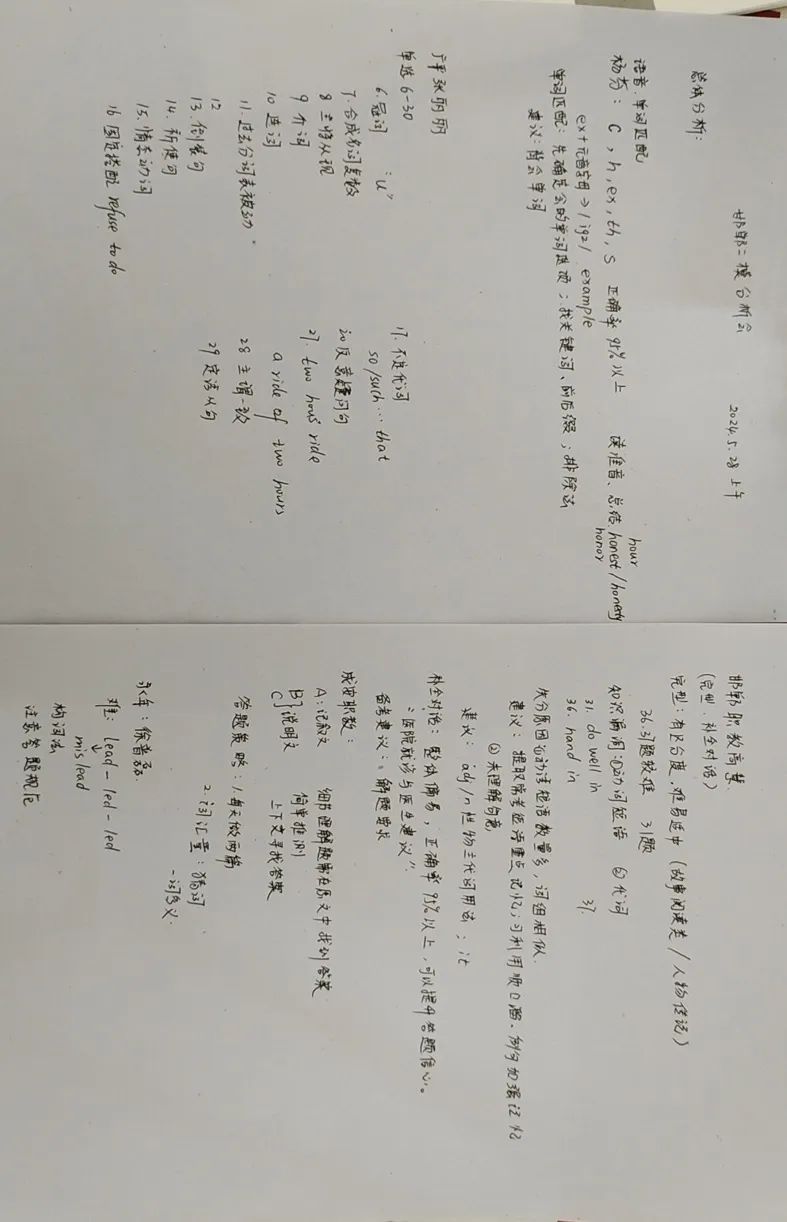 邯郸二模分析会 2024.5.28 上午
总体分析:
语音. 单词匹配
杨芬: C, h, ex, th, S 正确率95%以上 读准音、总结. honest/honesty
hour
honor
ex+元音字母→/igz/ example
单词匹配: 先确定会的单词选项; 找关键词、前后缀; 排除法
建议: 背会单词
广平张丽丽
单选 6-30
6 冠词 "u"
7. 合成名词复数
8 主将从现
9 介词
10 连词
11. 过去分词表被动
12
13. 倒装句
14. 祈使句
15. 情态动词
16 固定搭配 refuse to do
17. 不定代词
so/such … that
20 反意疑问句
27. two hours' ride
a ride of two hours
28 主谓一致
29 定语从句
邯郸职教高慧
(完型. 补全对话)
完型: 有区分度. 难易适中 (故事阅读类/人物传记)
36.习题较难 31题
知识漏洞 ①动词短语 ②代词
31. do well in 37.
36. hand in
失分原因 ①动词短语数量多, 词组相似.
建议: 提取常考短语重点记忆; 可利用顺口溜. 例句加强记忆
②未理解句意
建议: adj/n性物主代词用法; it
补全对话: 整体偏易, 正确率95%以上, 可以提升答题信心。
"医院就诊与医生建议"
备考建议: 解题要求
成安职教:
A: 记叙文 细节理解题需在原文中找到答案
B}说明文 简单推测
C 上下文寻找答案
答题策略: 1.每天做两篇
2. 词汇量: 猜词
-词多义.
永年: 徐
难: lead - led - led
mislead
构词法
注意答题规范